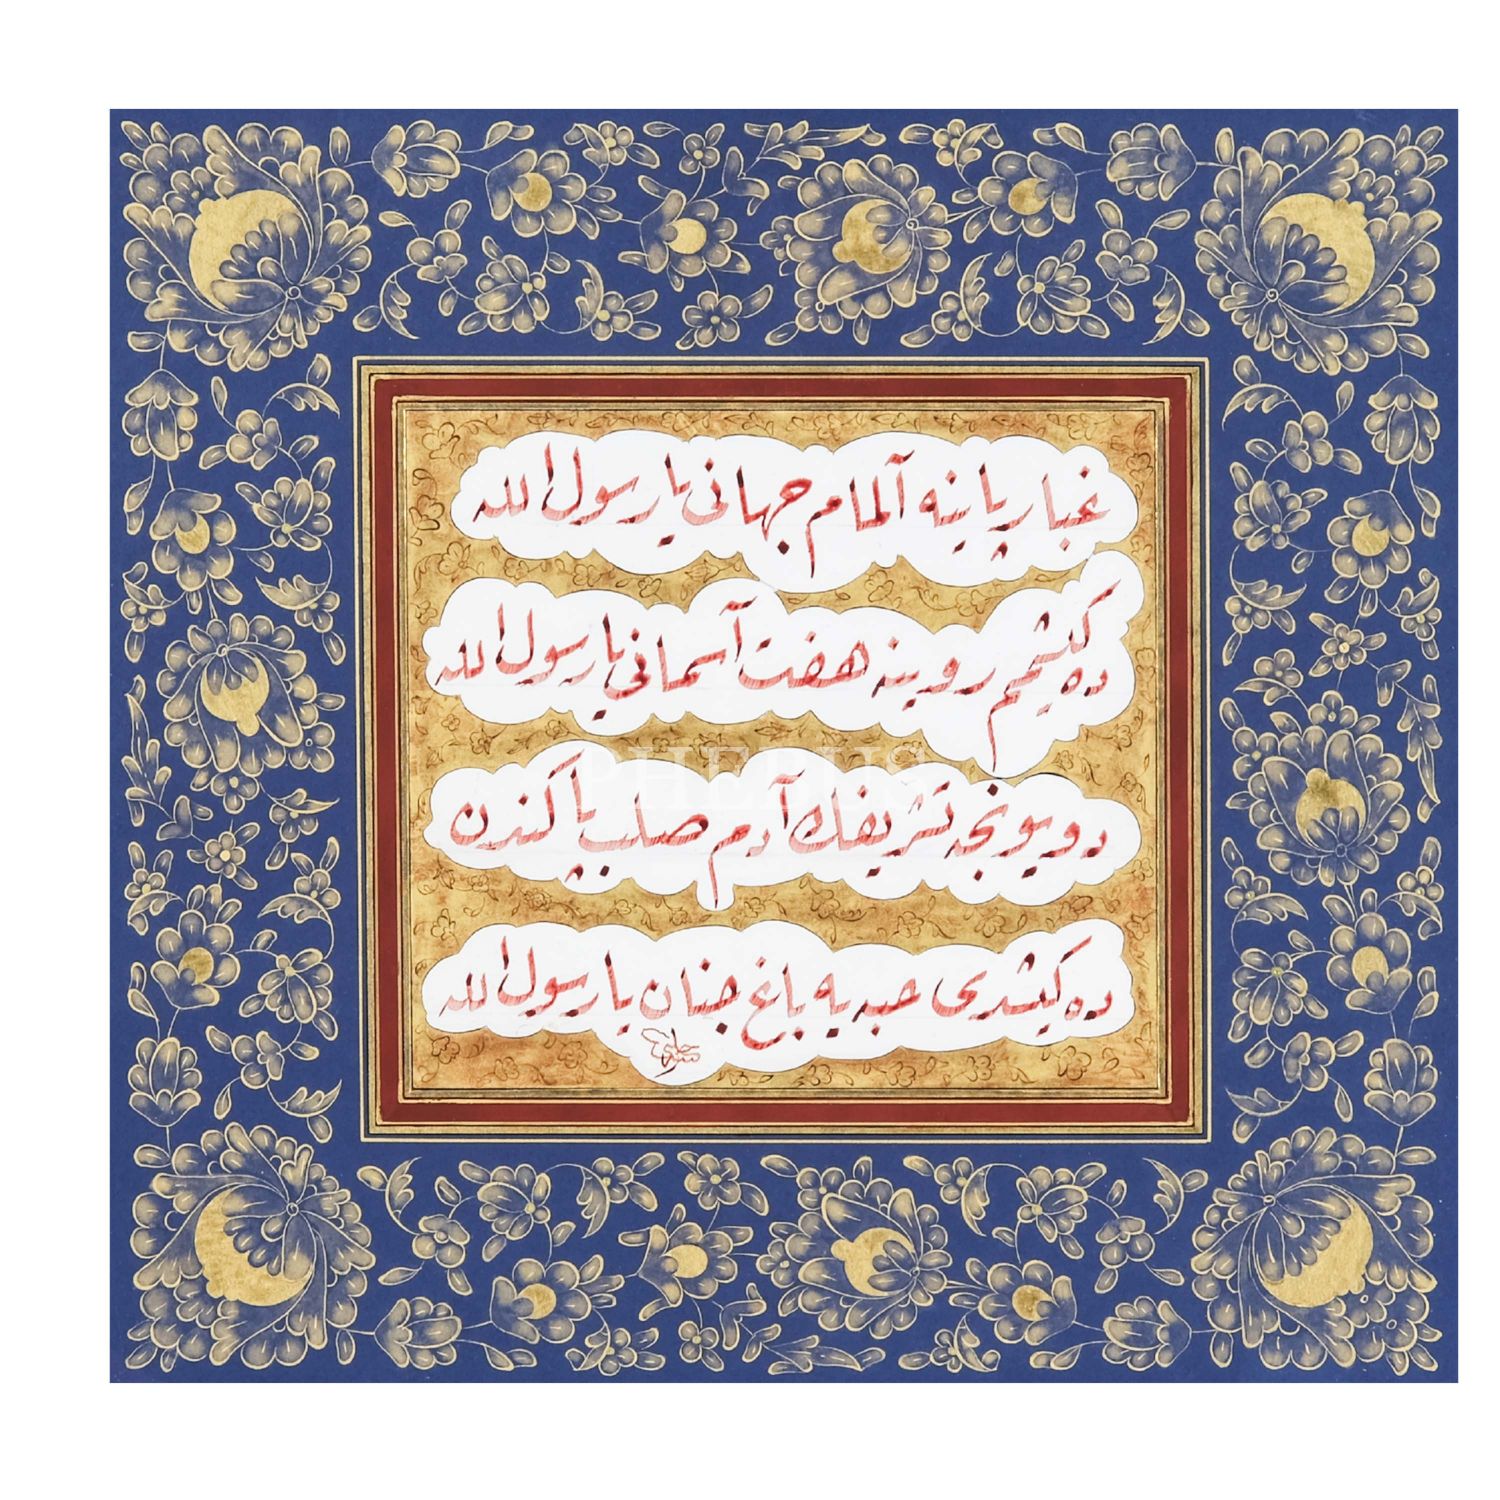 غبار پاینه آلمام جهانی یا رسول الله
ده کیشمم روینه هفت آسمانی یا رسول الله
دویونجه تشریفك آدم صلب پاکندن
ده کیشدی حبه یه باغ جنان یا رسول الله
PHEBUS